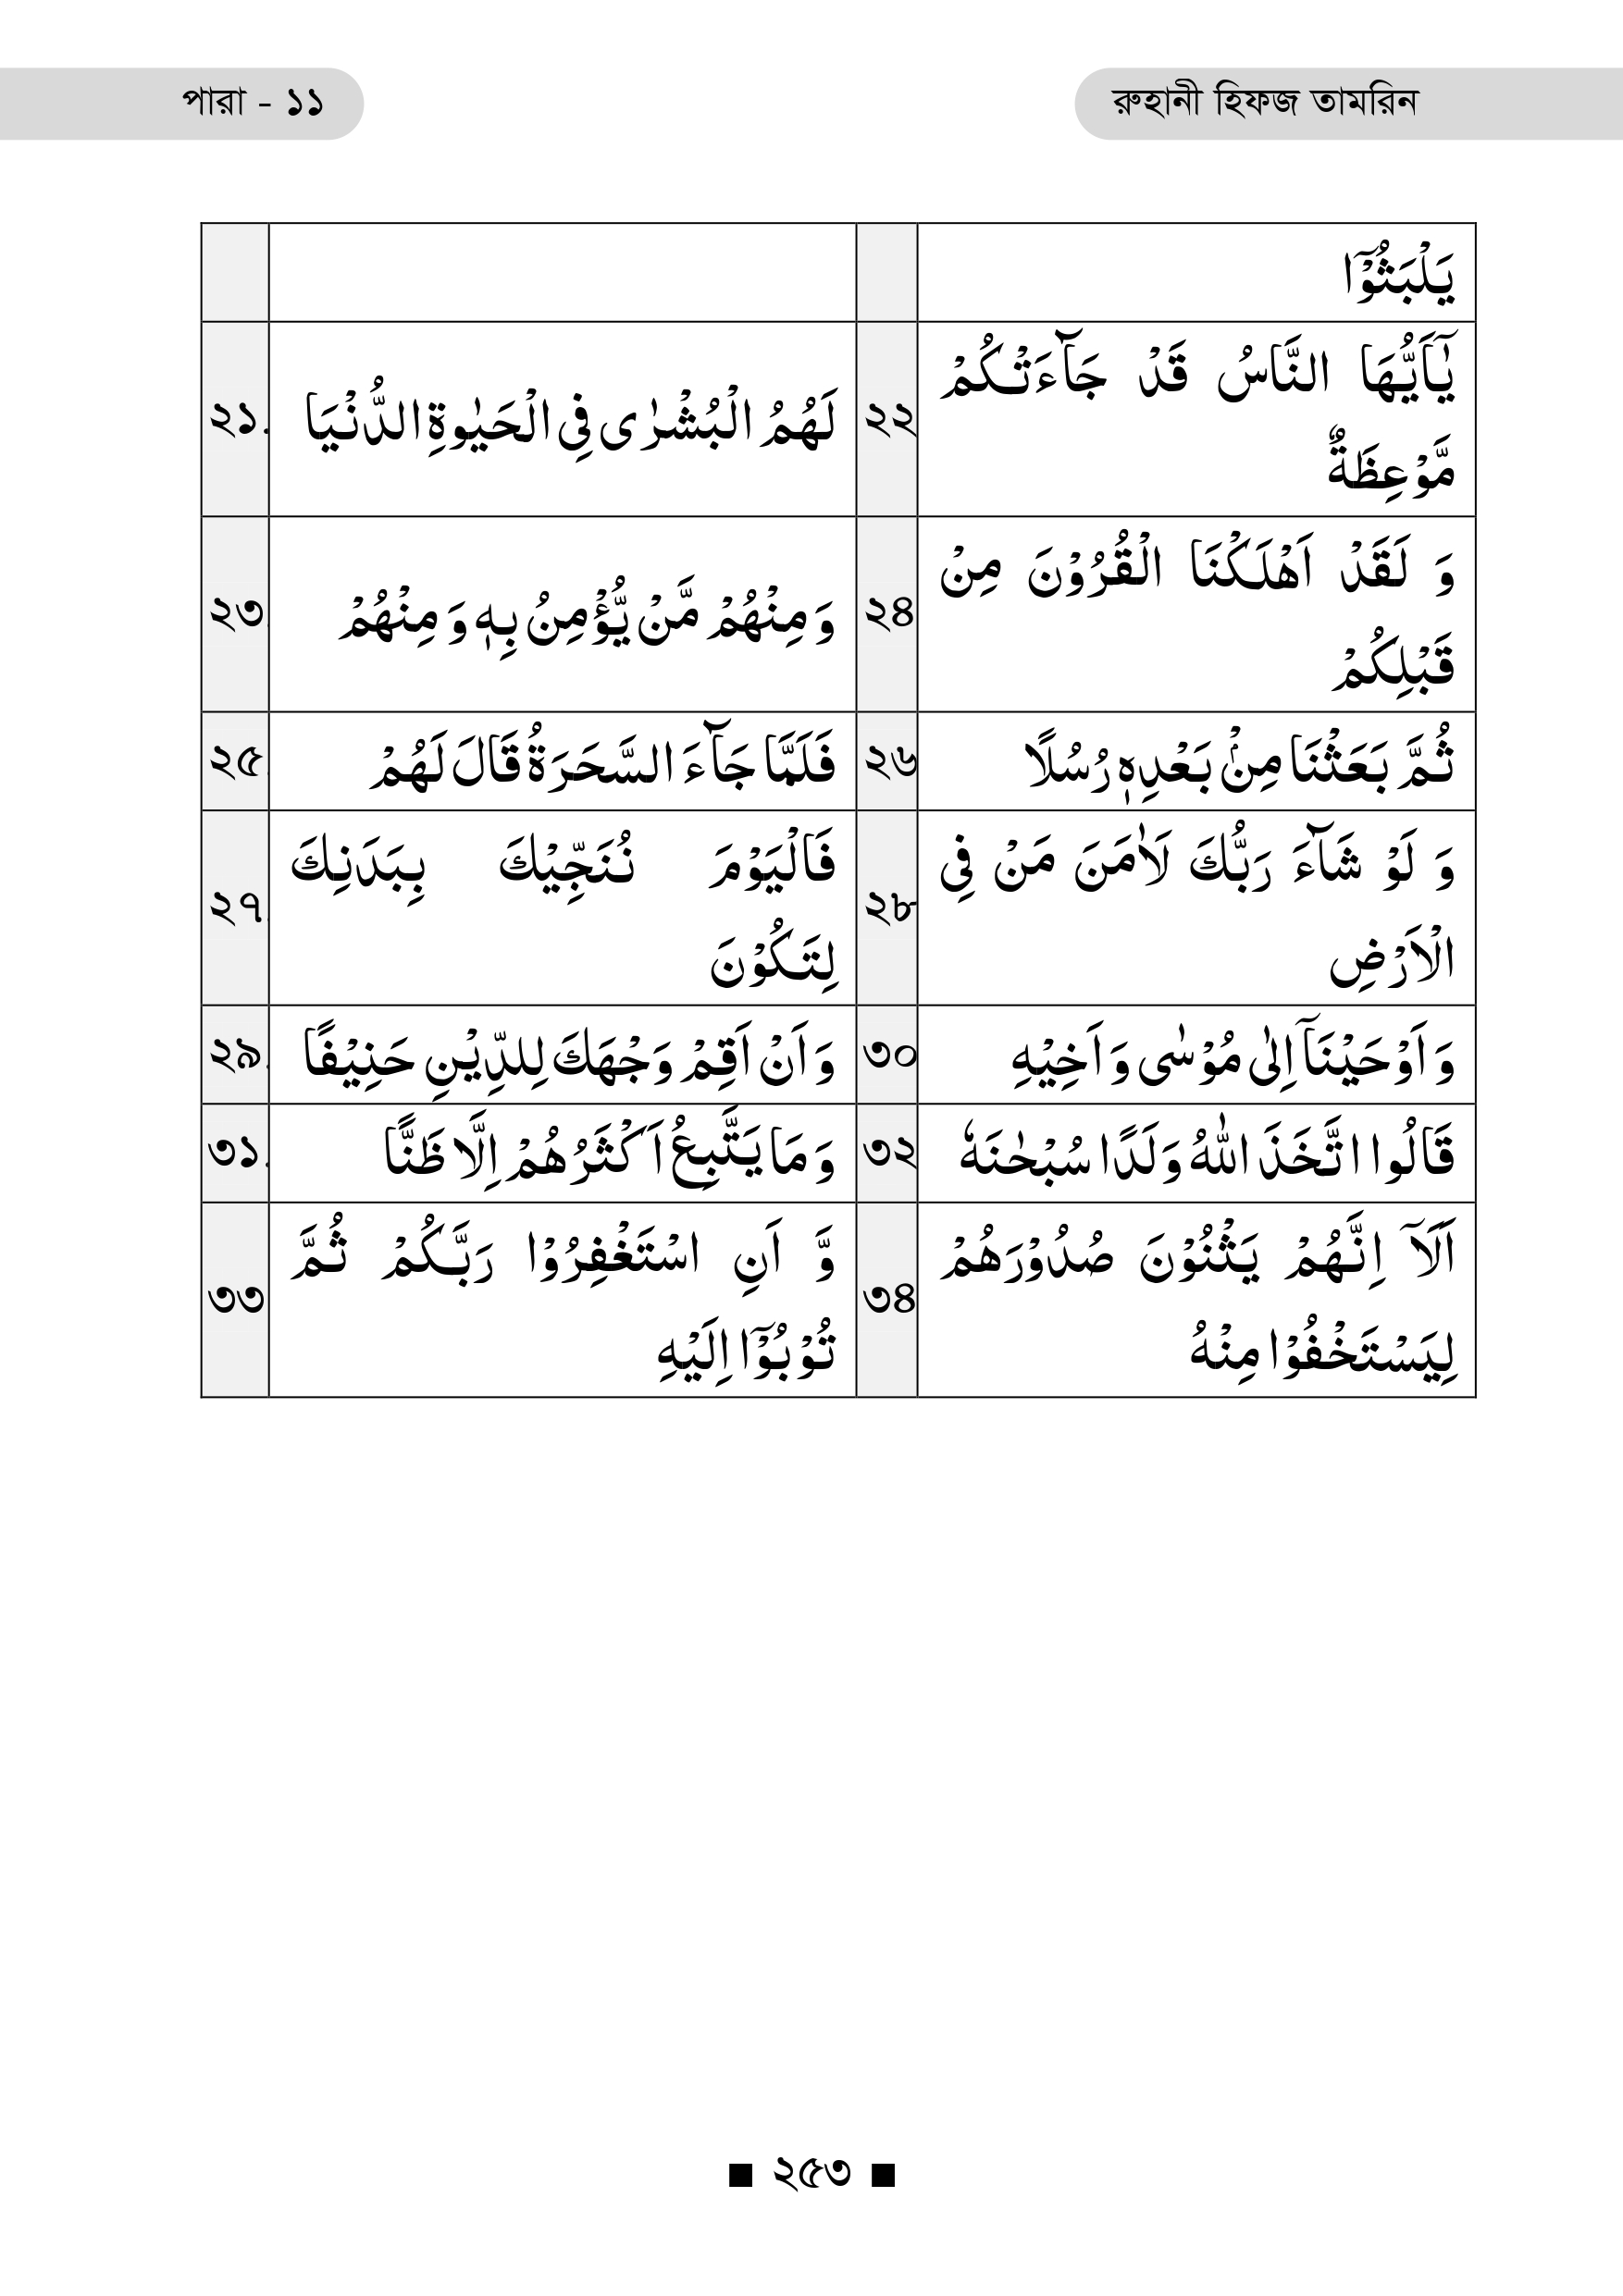 পারা - ১১
রুহানী হিফজ তামরিন
يَلْبَثُوْٓا
২১. لَهُمُ الْبُشْرٰى فِى الْحَيٰوةِ الدُّنْيَا
২২ يٰٓاَيُّهَا النَّاسُ قَدْ جَآءَتْكُمْ
مَّوْعِظَةٌ
২৩. وَ مِنْهُمْ مَّنْ يُّؤْمِنُ بِهٖ وَ مِنْهُمْ
২৪ وَ لَقَدْ اَهْلَكْنَا الْقُرُوْنَ مِنْ
قَبْلِكُمْ
২৫. فَلَمَّا جَآءَ السَّحَرَةُ قَالَ لَهُمْ
২৬ ثُمَّ بَعَثْنَا مِنْۢ بَعْدِهٖ رُسُلًا
২৭. فَالْيَوْمَ نُنَجِّيْكَ بِبَدَنِكَ
لِتَكُوْنَ
২৮ وَ لَوْ شَآءَ رَبُّكَ لَاٰمَنَ مَنْ فِى
الْاَرْضِ
২৯. وَ اَنْ اَقِمْ وَجْهَكَ لِلدِّيْنِ حَنِيْفًا
৩০ وَ اَوْحَيْنَآ اِلٰى مُوْسٰى وَ اَخِيْهِ
৩১. وَ مَا يَتَّبِعُ اَكْثَرُهُمْ اِلَّا ظَنًّا
৩২ قَالُوا اتَّخَذَ اللّٰهُ وَلَدًا سُبْحٰنَهٗ
৩৩ وَّ اَنِ اسْتَغْفِرُوْا رَبَّكُمْ ثُمَّ
تُوْبُوْٓا اِلَيْهِ
৩৪ اَلَآ اِنَّهُمْ يَثْنُوْنَ صُدُوْرَهُمْ
لِيَسْتَخْفُوْا مِنْهُ
■ ২৫৩ ■